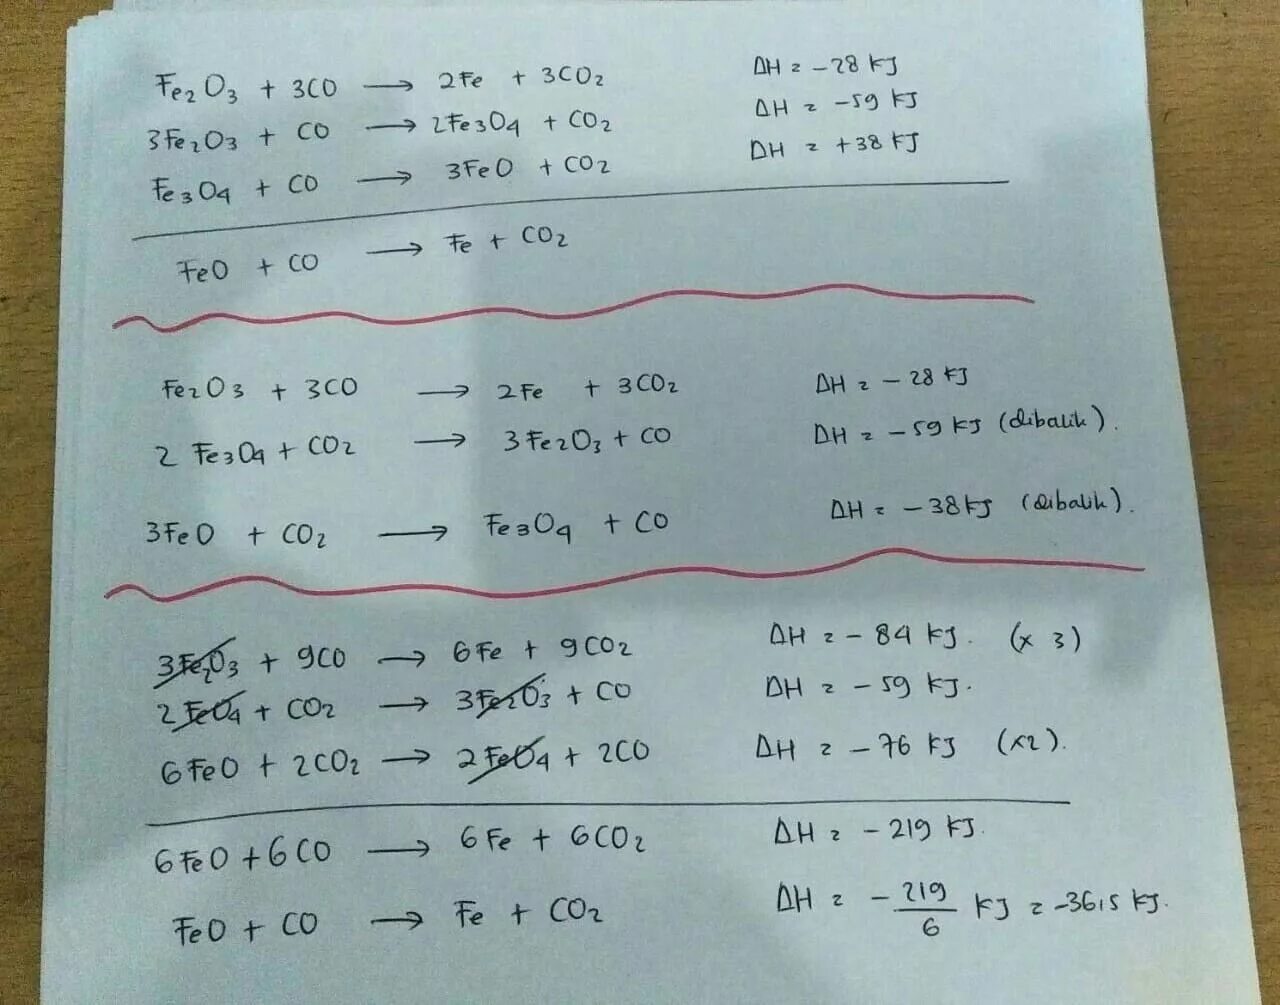 Fe2O3 + 3CO → 2Fe + 3CO2 ΔH = -28 kJ
3Fe2O3 + CO → 2Fe3O4 + CO2 ΔH = -59 kJ
Fe3O4 + CO → 3FeO + CO2 ΔH = +38 kJ
FeO + CO → Fe + CO2
Fe2O3 + 3CO → 2Fe + 3CO2 ΔH = -28 kJ
2 Fe3O4 + CO2 → 3Fe2O3 + CO ΔH = -59 kJ (dibalik).
3FeO + CO2 → Fe3O4 + CO ΔH = -38 kJ (dibalik).
3Fe2O3 + 9CO → 6Fe + 9CO2 ΔH = -84 kJ. (x 3)
2FeO4 + CO2 → 3Fe2O3 + CO ΔH = -59 kJ.
6FeO + 2CO2 → 2FeO4 + 2CO ΔH = -76 kJ (x2).
6FeO + 6CO → 6Fe + 6CO2 ΔH = -219 kJ.
FeO + CO → Fe + CO2 ΔH = -219/6 kJ = -36,5 kJ.